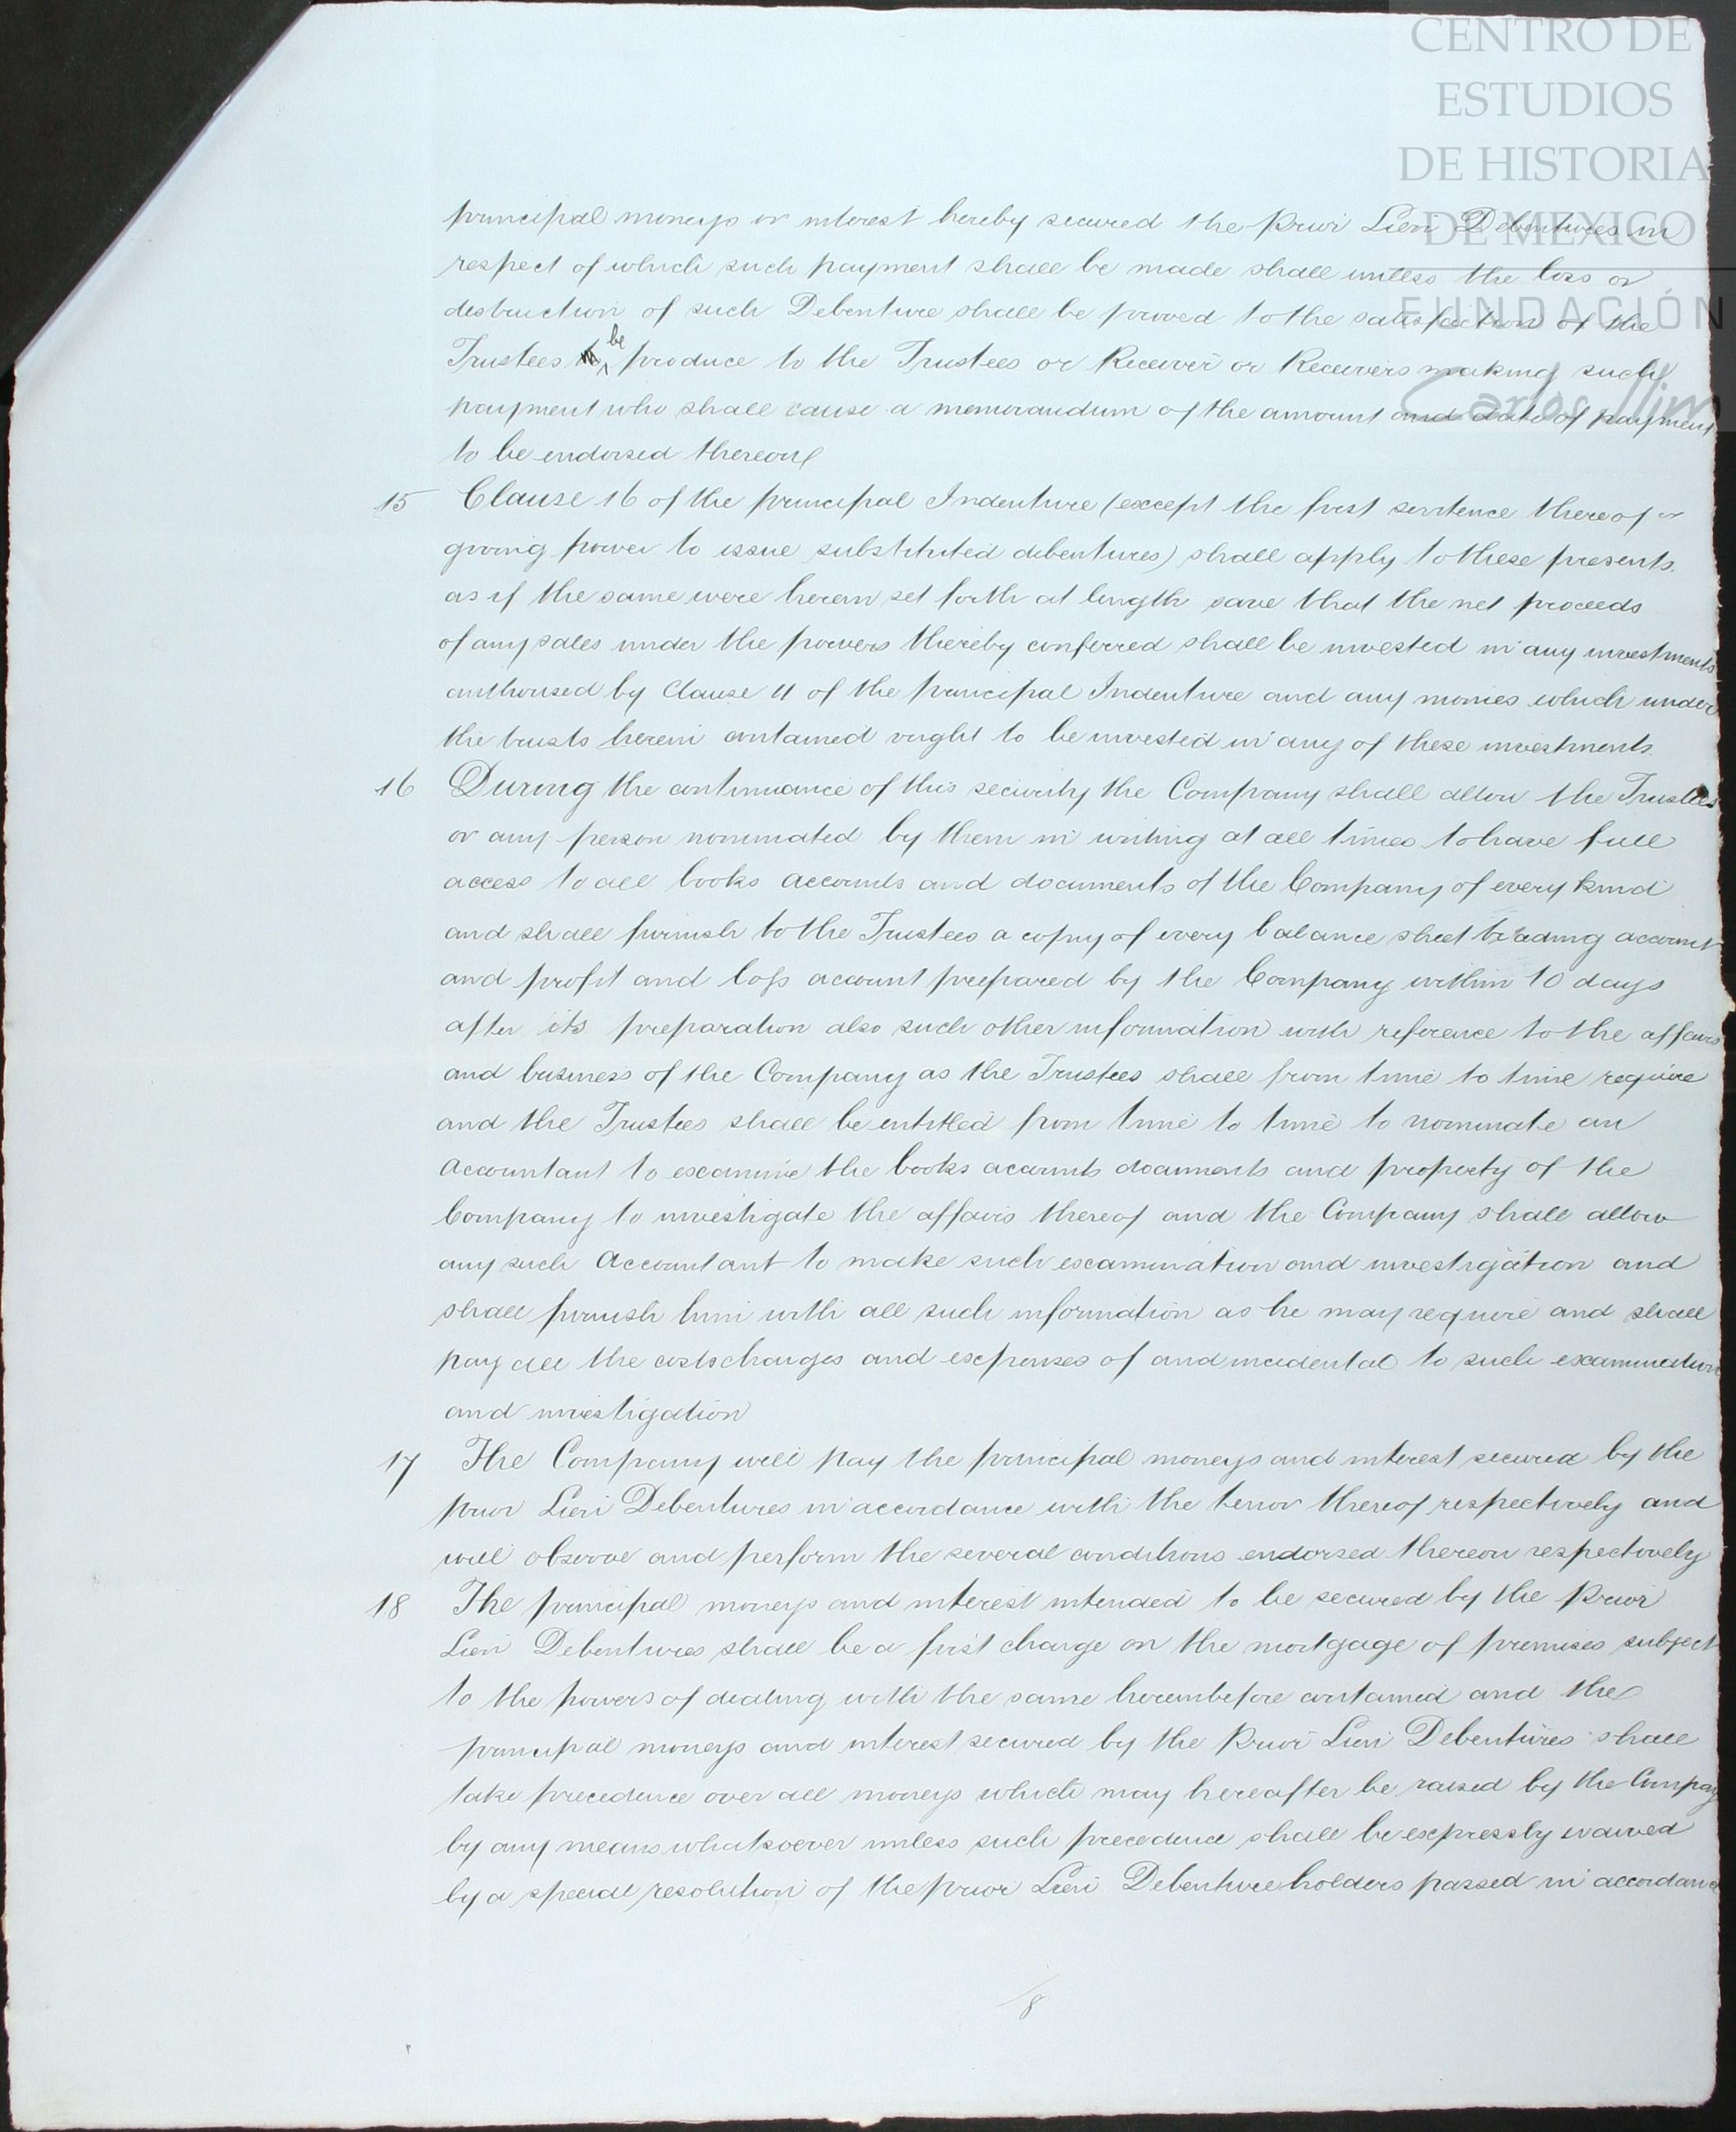 CENTRO DE
ESTUDIOS
DE HISTORIA
DE MEXICO
FUNDACIÓN
Carlos Slim
principal moneys or interest hereby secured the Prior Lien Debentures in
respect of which such payment shall be made shall unless the loss or
destruction of such Debenture shall be proved to the satisfaction of the
Trustees be produce to the Trustees or Receiver or Receivers making such
payment who shall cause a memorandum of the amount and date of payment
to be endorsed thereon
15 Clause 16 of the principal Indenture (except the first sentence thereof
giving power to issue substituted debentures) shall apply to these presents.
as if the same were herein set forth at length save that the net proceeds
of any sales under the powers thereby conferred shall be invested in any investments
authorised by Clause 11 of the principal Indenture and any monies which under
the trusts herein contained ought to be invested in any of these investments.
16 During the continuance of this security the Company shall allow the Trustees
or any person nominated by them in writing at all times to have full
access to all books accounts and documents of the Company of every kind
and shall furnish to the Trustees a copy of every balance sheet trading account
and profit and loss account prepared by the Company within 10 days
after its preparation also such other information with reference to the affairs
and business of the Company as the Trustees shall from time to time require
and the Trustees shall be entitled from time to time to nominate an
Accountant to examine the books accounts documents and property of the
Company to investigate the affairs thereof and the Company shall allow
any such Accountant to make such examination and investigation and
shall furnish him with all such information as he may require and shall
pay all the costs charges and expenses of and incidental to such examination
and investigation
17 The Company will pay the principal moneys and interest secured by the
prior Lien Debentures in accordance with the tenor thereof respectively and
will observe and perform the several conditions endorsed thereon respectively
18 The principal moneys and interest intended to be secured by the Prior
Lien Debentures shall be a first charge on the mortgage of premises subject
to the powers of dealing with the same hereinbefore contained and the
principal moneys and interest secured by the Prior Lien Debentures shall
take precedence over all moneys which may hereafter be raised by the Company
by any means whatsoever unless such precedence shall be expressly waived
by a special resolution of the prior Lien Debenture holders passed in accordance
8